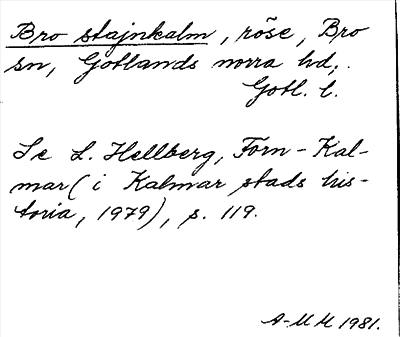 Bro stajnkalm, röse, Bro
sn, Gotlands norra hd,.
Gotl. l.
Se L. Hellberg, Forn-Kal-
mar (i Kalmar stads his-
toria, 1979), s. 119.
A-MM 1981.